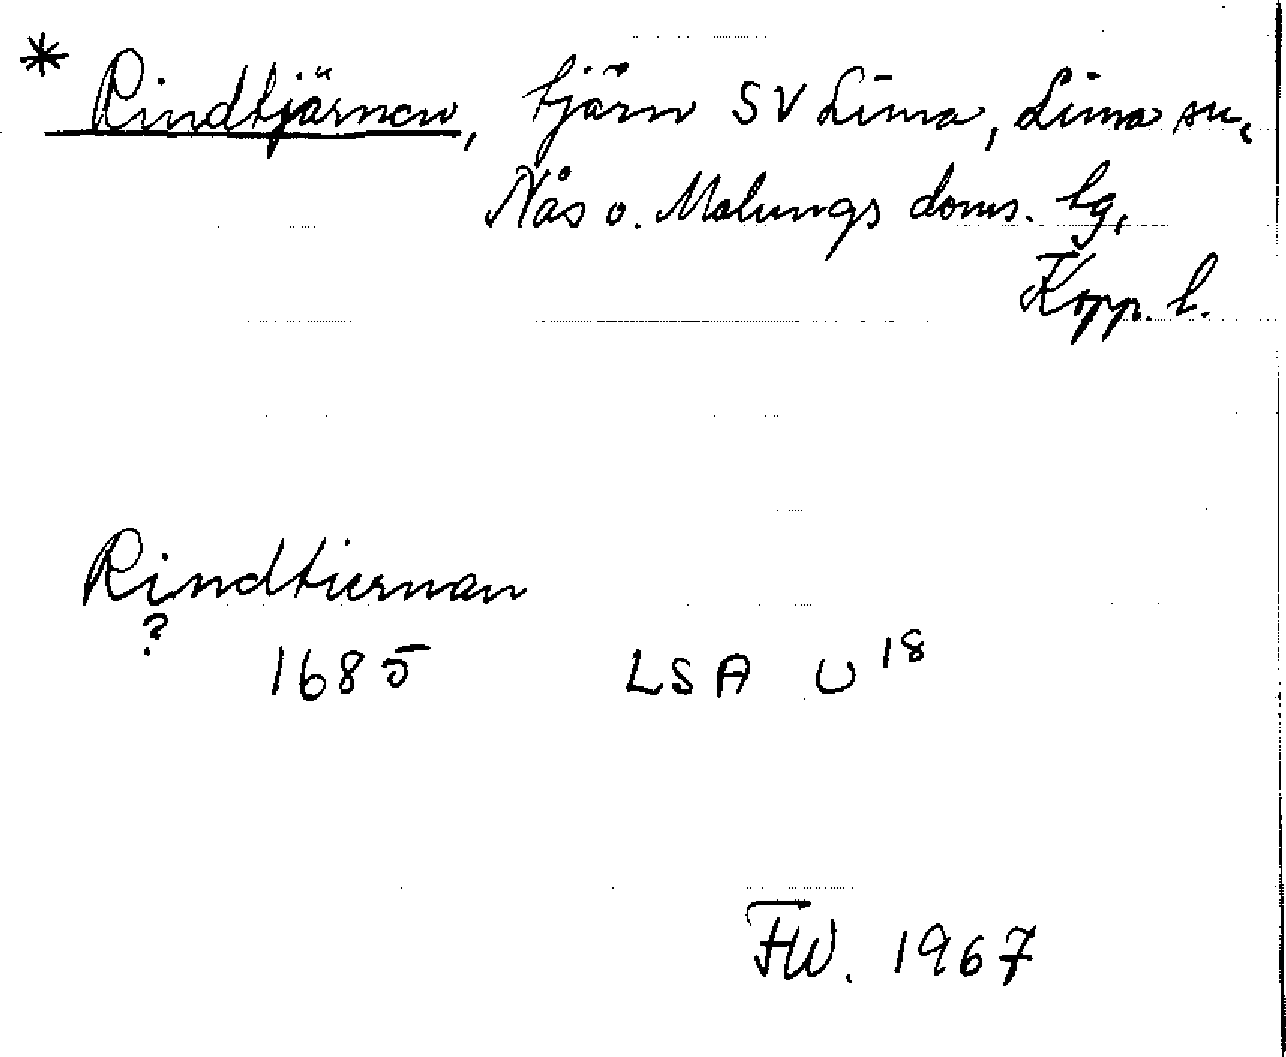 * Rindtjärnen, tjärn SV Lima, Lima sn,
Nås o. Malungs doms. lg,
Kopp. l.
Rindtiernan
?
1685 LSA U 18
FW. 1967